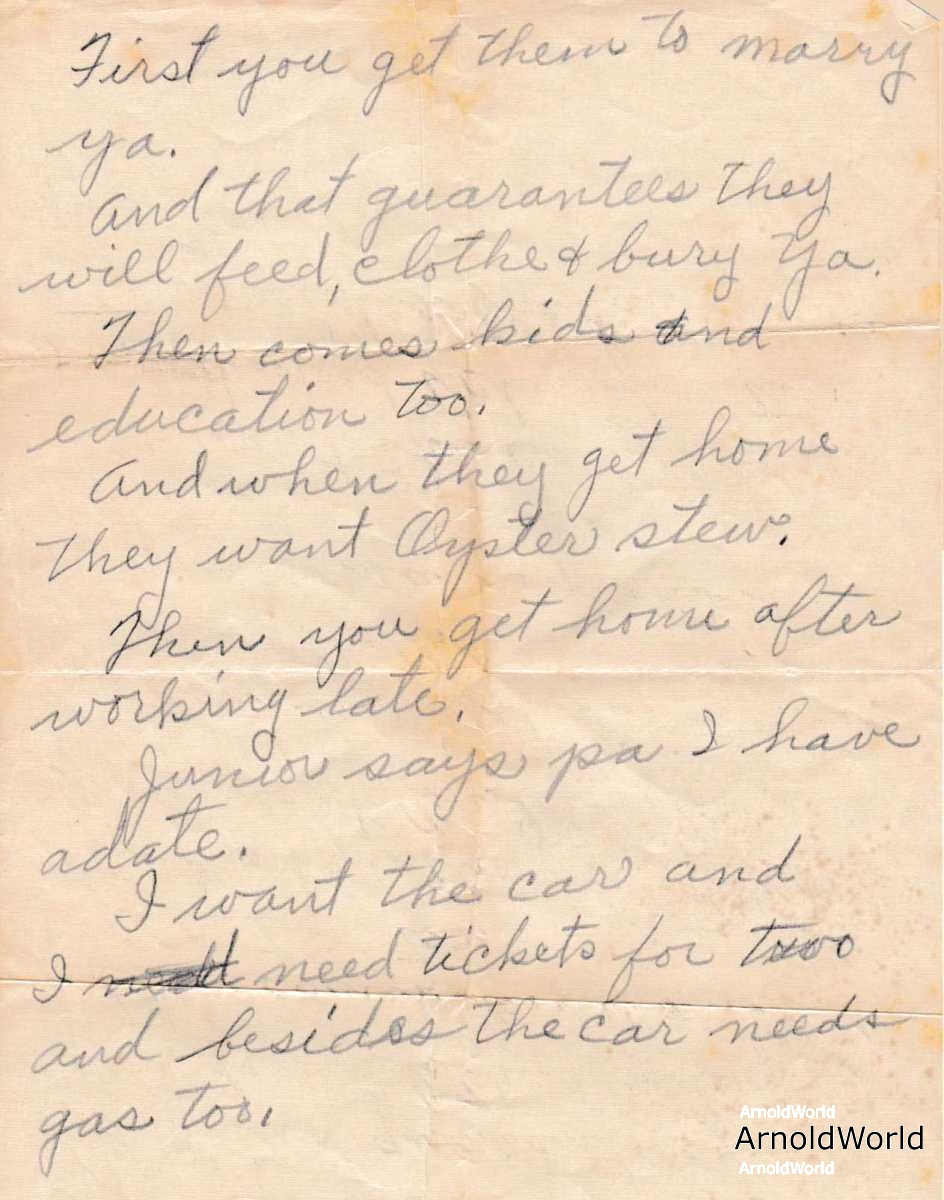 First you get them to marry
ya.
And that guarantees they
will feed, clothe & bury ya.
Then comes kids and
education too.
And when they get home
they want Oyster stew.
Then you get home after
working late.
Junior says pa I have
adate.
I want the car and
I need tickets for two
and besides the car needs
gas too.
ArnoldWorld
ArnoldWorld
ArnoldWorld